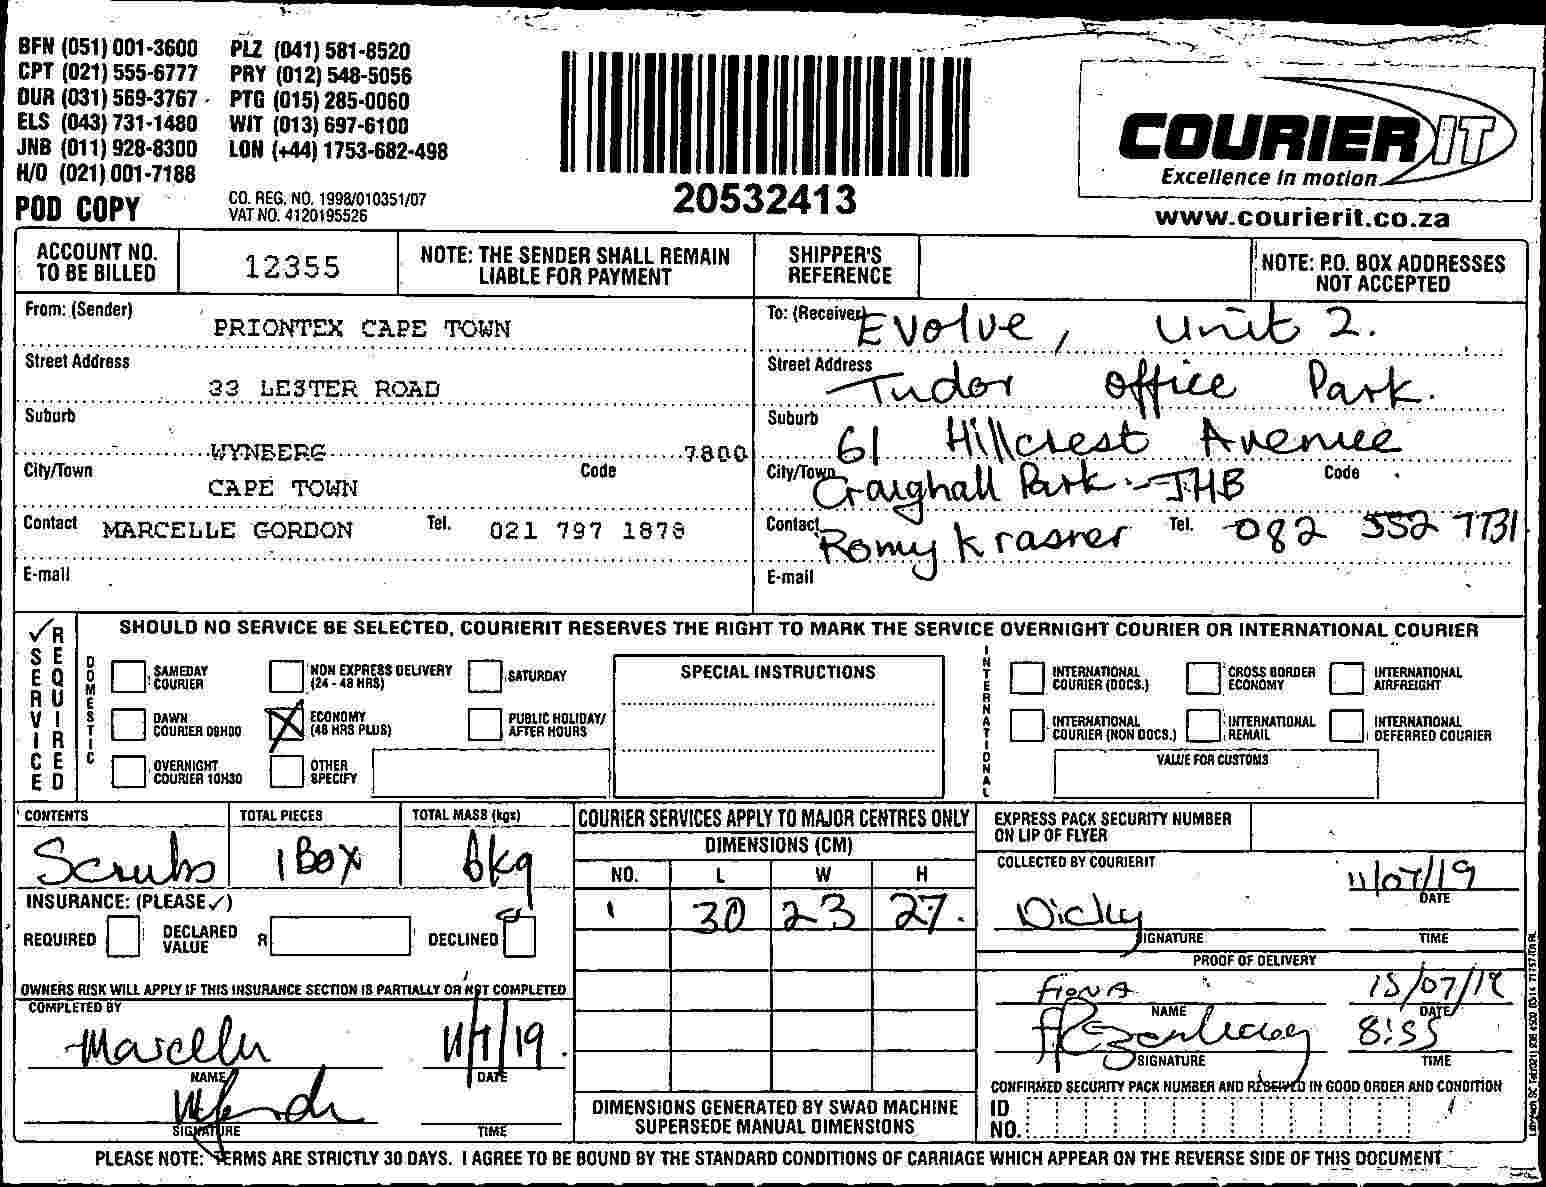 BFN (051) 001-3600 PLZ (041) 581-8520
CPT (021) 555-6777 PRY (012) 548-5056
DUR (031) 569-3767 PTG (015) 285-0060
ELS (043) 731-1480 WIT (013) 697-6100
JNB (011) 928-8300 LON (+44) 1753-682-498
H/O (021) 001-7188
POD COPY
CO. REG. NO. 1998/010351/07
VAT NO. 4120195526
20532413
COURIER IT
Excellence in motion
www.courierit.co.za
ACCOUNT NO. TO BE BILLED 12355
NOTE: THE SENDER SHALL REMAIN LIABLE FOR PAYMENT
SHIPPER'S REFERENCE
NOTE: P.O. BOX ADDRESSES NOT ACCEPTED
From: (Sender) PRIONTEX CAPE TOWN
Street Address 33 LESTER ROAD
Suburb WYNBERG 7800
City/Town CAPE TOWN Code
Contact MARCELLE GORDON Tel. 021 797 1878
E-mail
To: (Receiver) Evolve, Unit 2.
Street Address Tudor Office Park.
Suburb 61 Hillcrest Avenue
City/Town Craighall Park - JHB Code
Contact Romy Krasner Tel. 082 552 7731
E-mail
✓ SERVICE REQUIRED
SHOULD NO SERVICE BE SELECTED, COURIERIT RESERVES THE RIGHT TO MARK THE SERVICE OVERNIGHT COURIER OR INTERNATIONAL COURIER
DOMESTIC
SAMEDAY COURIER
NON EXPRESS DELIVERY (24 - 48 HRS)
SATURDAY
DAWN COURIER 08H00
ECONOMY (48 HRS PLUS)
PUBLIC HOLIDAY/ AFTER HOURS
OVERNIGHT COURIER 10H30
OTHER SPECIFY
SPECIAL INSTRUCTIONS
INTERNATIONAL
INTERNATIONAL COURIER (DOCS.)
CROSS BORDER ECONOMY
INTERNATIONAL AIRFREIGHT
INTERNATIONAL COURIER (NON DOCS.)
INTERNATIONAL REMAIL
INTERNATIONAL DEFERRED COURIER
VALUE FOR CUSTOMS
CONTENTS Scrubs
TOTAL PIECES 1 Box
TOTAL MASS (kgs) 6kg
INSURANCE: (PLEASE ✓)
REQUIRED DECLARED VALUE R DECLINED
OWNERS RISK WILL APPLY IF THIS INSURANCE SECTION IS PARTIALLY OR NOT COMPLETED
COMPLETED BY
Marcelle 11/7/19.
NAME DATE
SIGNATURE TIME
COURIER SERVICES APPLY TO MAJOR CENTRES ONLY
DIMENSIONS (CM)
NO. L W H
1 30 23 27.
DIMENSIONS GENERATED BY SWAD MACHINE SUPERSEDE MANUAL DIMENSIONS
EXPRESS PACK SECURITY NUMBER ON LIP OF FLYER
COLLECTED BY COURIERIT
Dicky 11/07/19
DATE
SIGNATURE TIME
PROOF OF DELIVERY
FIONA 15/07/19
NAME DATE
8:55
SIGNATURE TIME
CONFIRMED SECURITY PACK NUMBER AND RECEIVED IN GOOD ORDER AND CONDITION
ID NO.
PLEASE NOTE: TERMS ARE STRICTLY 30 DAYS. I AGREE TO BE BOUND BY THE STANDARD CONDITIONS OF CARRIAGE WHICH APPEAR ON THE REVERSE SIDE OF THIS DOCUMENT